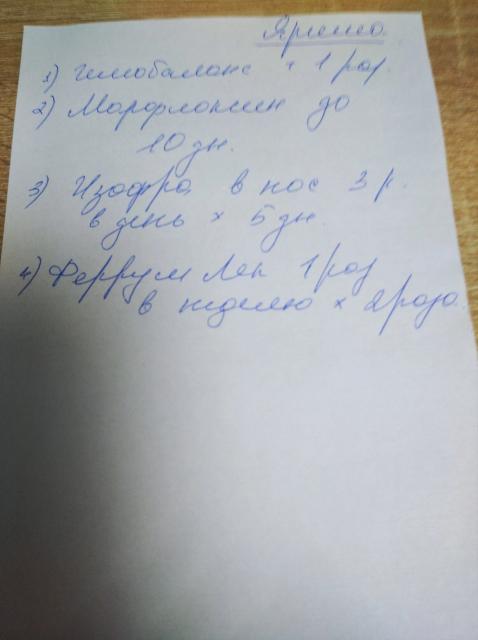 Ярина
1) Гемобаланс × 1 раз.
2) Марфлоксин до
10 дн.
3) Изофра в нос 3 р.
в день × 5 дн.
4) Феррум Лек 1 раз
в неделю × 2 раза